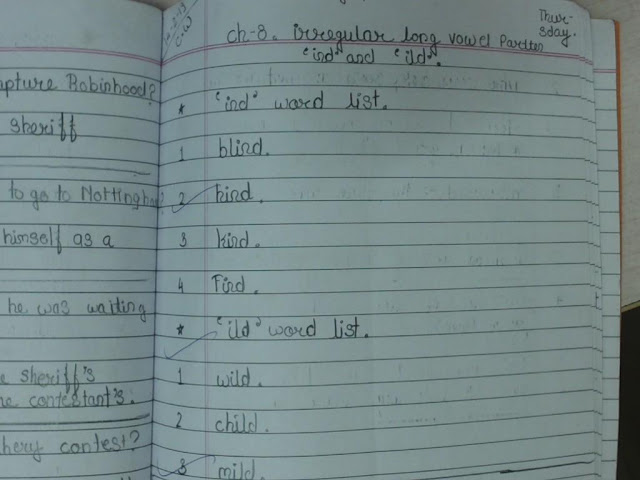 apture Robinhood?
sheriff
to go to Nottingham?
himself as a
he was waiting
e sheriff's
he contestant's.
hery contest?
C.W
Thur-
sday.
Ch-8. irregular long vowel Partten
"ind" and "ild".
* "ind" word list.
1 blind.
2
3 kind.
4 Find.
* "ild" word list.
1 wild.
2 child.
3 mild.